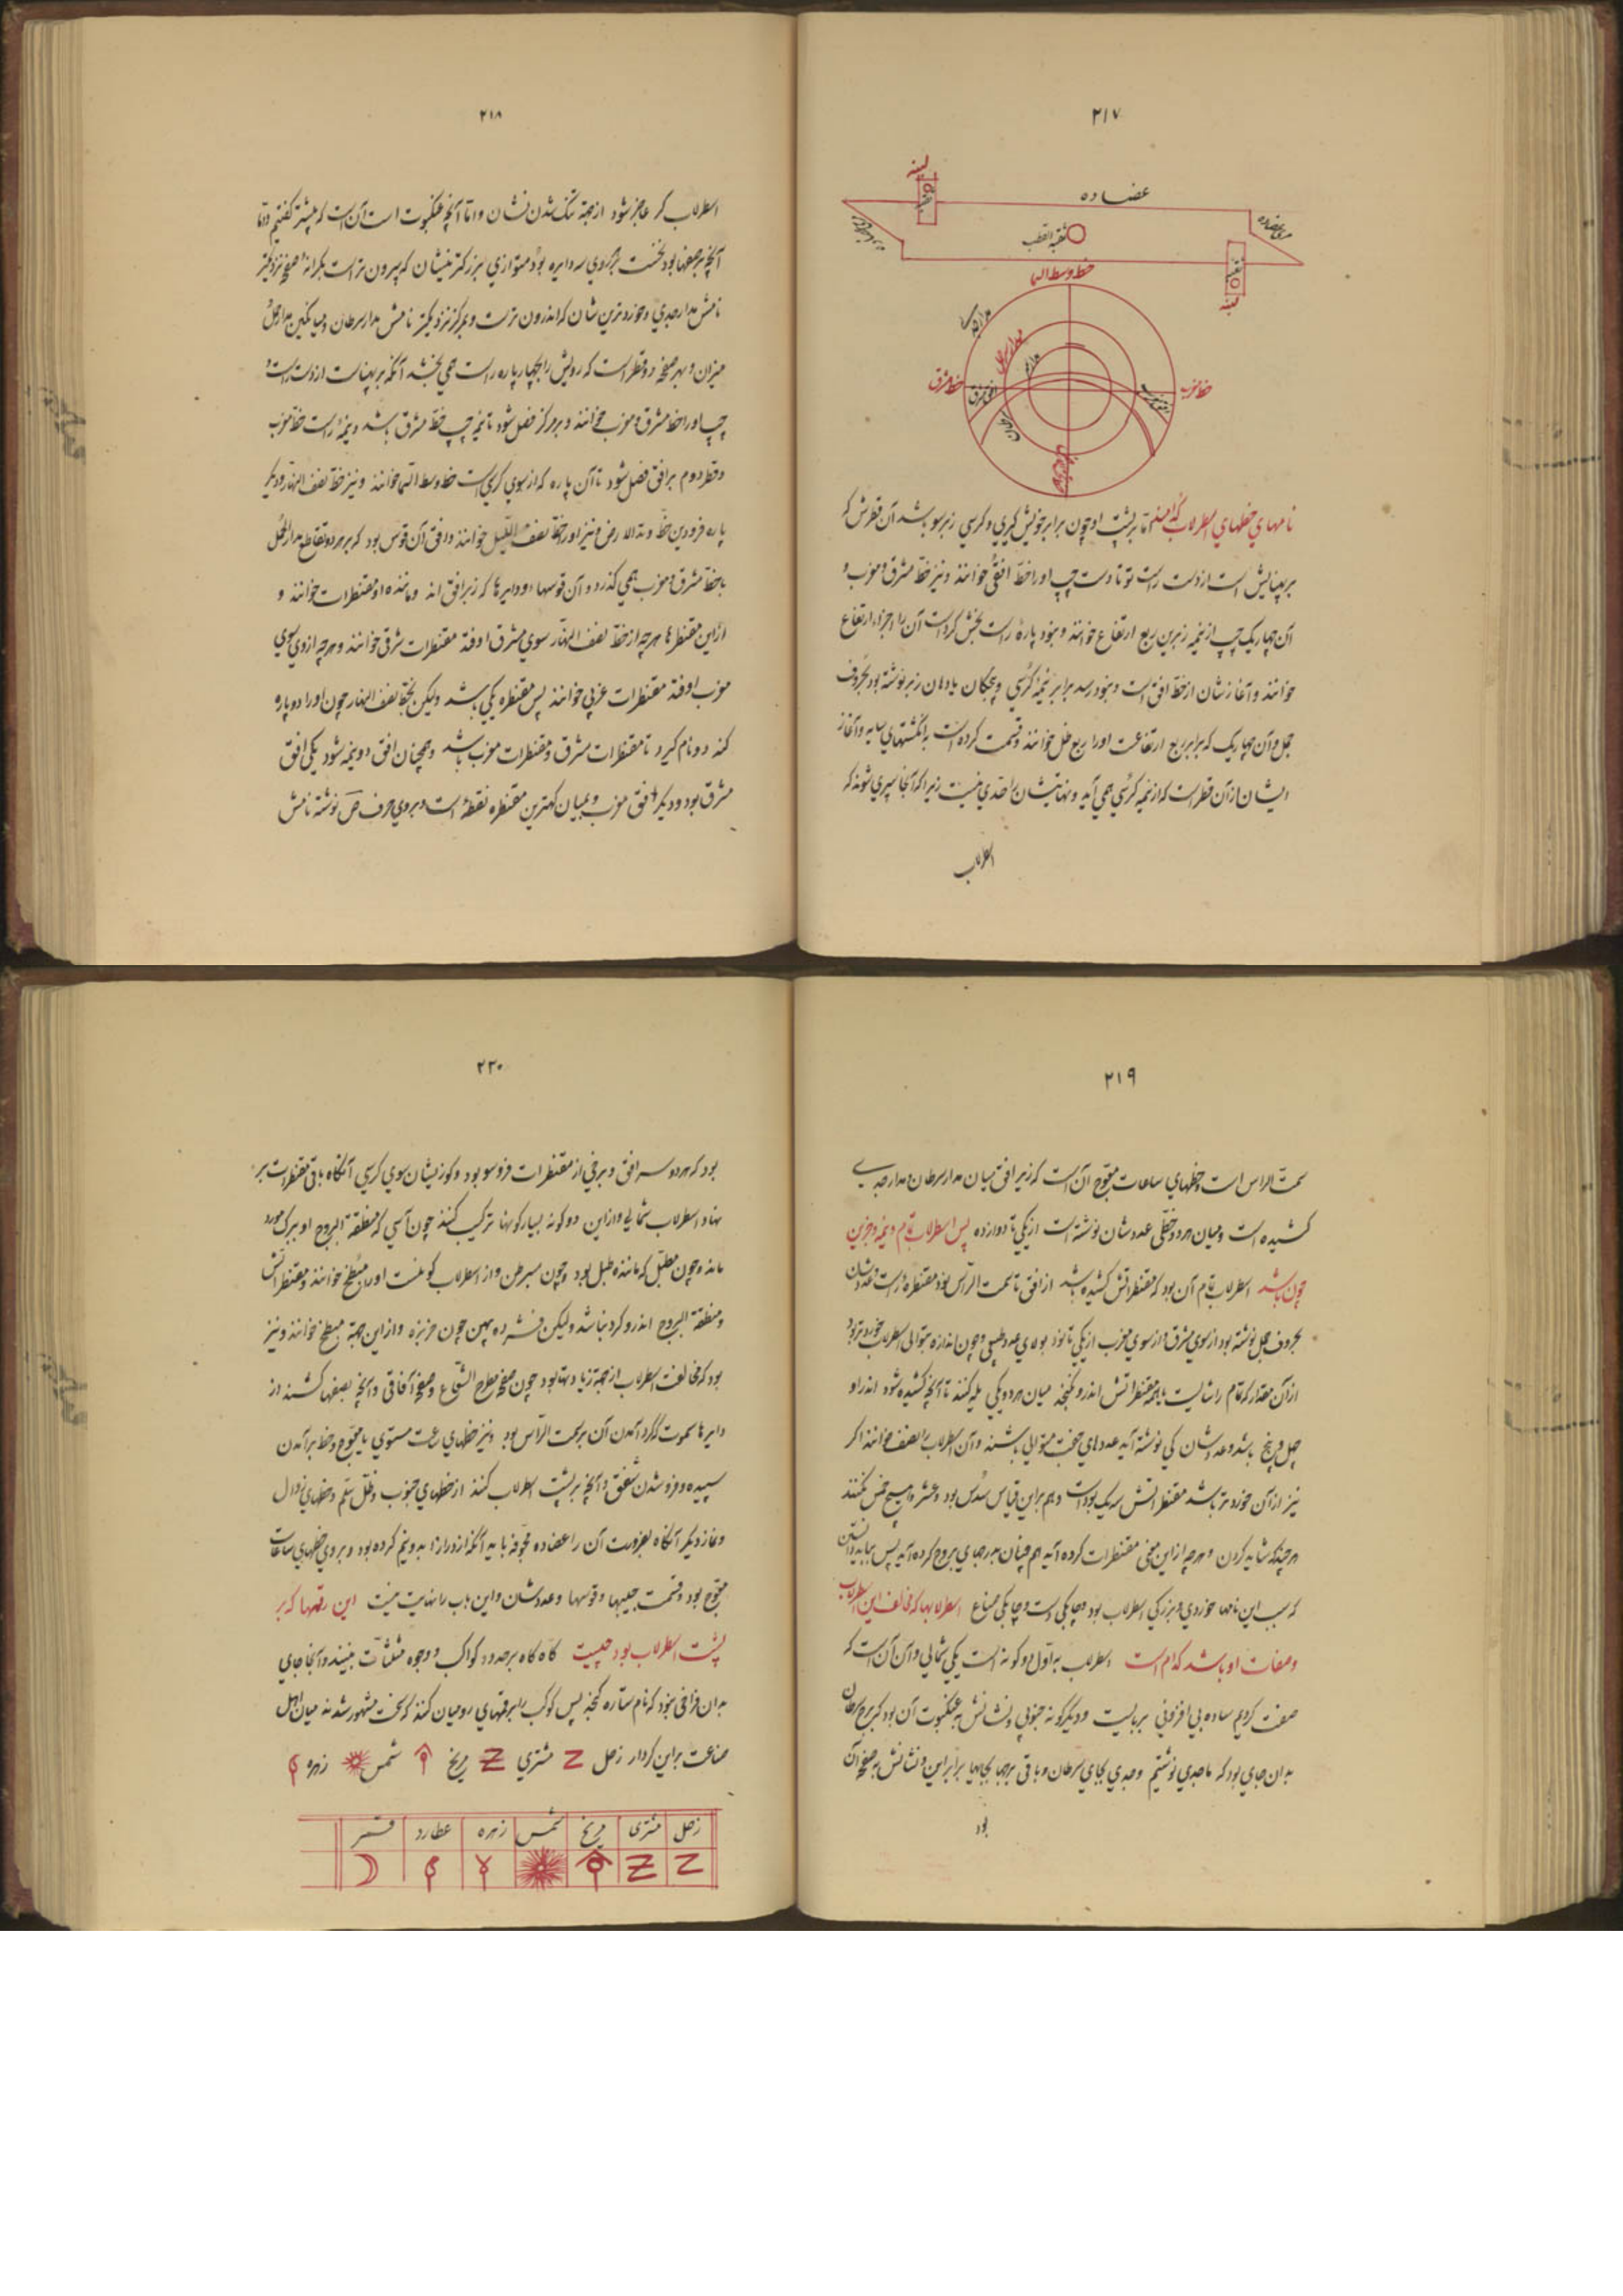 ۲۱۷
لبنه
عضاده
ثقبه
ثقبه القطب
لبنه
خط وسط السما
خط مغرب
خط مشرق
افق مشرق
نامهای خطهای اسطرلاب کدامند اما بر پشت او چون برابر خویش گیری و کرسی زبرسو باشد آن قطرش که
بر پهنایش است از دست راست تو تا دست چپ او را خط افقی خوانند و نیز خط مشرق و مغرب و
آن چهاریک چپ از نیمه زبرین ربع ارتفاع خوانند و بنود پاره راست بخش کرده است آن را اجزاء ارتفاع
خوانند و آغازشان از خط افق است و بنود رسد برابر نیمه کرسی و پنجگان یا دهان زبر نوشته بود بحروف
جمل و آن چهاریک که برابر ربع ارتفاعست او را ربع ظل خوانند و قسمت کرده است به انگشتهای سایه و آغاز
ایشان از آن قطر است که از نیمه کرسی همی آید و نهایتشان را حدی نیست زیرا که آنجا سپری شوند که
اسطرلاب
۲۱۸
اسطرلاب کر عاجز شود از جهة تنگ شدن نشان و اما آنچه عنکبوت است آن است که پیشتر گفتیم و اما
آنچه بر صفحها بود نخست بر هر روی سه دایره بود متوازی بزرگترینشان که بیرون تر است بکرانه صفحه نزدیکتر
نامش مدار جدی و خردترین شان که اندرون تر است و بمرکز نزدیکتر نامش مدار سرطان و میانگین مدار حمل
میزان و بهر صفحه دو قطر است که رویش را بچهار پاره راست همی بخشد آنکه بر پهناست از دست راست و
چپ او را خط مشرق و مغرب خوانند و بر مرکز فصل شود تا نیمه چپ خط مشرق باشد و نیمه راست خط مغرب
و قطر دوم بر افق فصل شود تا آن پاره که از سوی کرسی است خط وسط السما خوانند و نیز خط نصف النهار و دیگر
پاره فرودین خط وتد الارض و نیز او را خط نصف اللیل خوانند و افق آن قوس بود که بر هر دو تقاطع مدار حمل
با خط مشرق و مغرب همی گذرد و آن قوسها و دایرها که زبر افق اند و ماننده او مقنطرات خوانند و
از این مقنطرها هرچه از خط نصف النهار سوی مشرق اوفتد مقنطرات شرقی خوانند و هرچه از وی سوی
مغرب اوفتد مقنطرات غربی خوانند پس مقنطره یکی باشد ولیکن بخط نصف النهار چون او را دو پاره
کند دو نام گیرد تا مقنطرات مشرق و مقنطرات مغرب باشد و همچنان افق دو نیمه شود یکی افق
مشرق بود و دیگر افق مغرب و بمیان کهترین مقنطره نقطهٔ است و بر وی حرف ص نوشته نامش
۲۱۹
سمت الراس است و خطهای ساعات معوج آن است که زیر افق میان مدار سرطان و مدار جدی
کشیده است و میان هر دو خطی عددشان نوشته است از یکی تا دوازده پس اسطرلاب تام و نیمه و جزین
چون باشد اسطرلاب تام آن بود که مقنطراتش کشیده باشد از افق تا سمت الراس نود مقنطره راست و عددشان
بحروف جمل نوشته بود از سوی مشرق و از سوی مغرب از یکی تا نود بولای عدد طبیعی و چون اندازه متوالی اسطرلاب خردتر بود
از آن مقدار که تمام را شایست یا همه مقنطراتش اندرو نگنجد میان هر دو یکی یله کنند تا آنچه کشیده شود اندر او
چهل و پنج باشد و عددشان کی نوشته آید عددهای جفت متوالی باشند و آن اسطرلاب را نصف خوانند اگر
نیز از آن خردتر باشد مقنطراتش سه یک بود است و هم براین قیاس سدس بود و عشر و هیچ خمس نکنند
هر چند که شاید کردن و هرچه از این معنی مقنطرات کرده آید هم چنان ببرجهای بروج کرده آید پس بباید دانستن
که سبب این نامها خردی و بزرگی اسطرلاب بود و چابکی دست و چابکی صناع اسطرلابها که مخالف این اسطرلاب
و صفات او باشد کدام است اسطرلاب به اول دو گونه است یکی شمالی و آن آن است که
صفت کردیم ساده بی افزونی بر بایست و دیگر گونه جنوبی و نشانش به عنکبوت آن بود که برج سرطان
بدان جای بود که ما جدی نوشتیم و جدی بجای سرطان و باقی برجها بجایها برابر این و نشانش بر صفحه آن
بود
۲۲۰
بود که هر دو سر افق و برخی از مقنطرات فروسو بود و کوزیشان سوی کرسی آنگاه باقی مقنطرات بر
نهاد اسطرلاب شمالی و از این دو گونه بسیار گونها ترکیب کنند چون آسی که منطقة البروج او ببرگ مورد
ماند و چون مطبل که ماننده طبل بود و چون سرطن و از اسطرلاب گونیست او را مسطح خوانند و مقنطراتش
و منطقة البروج اندرو گرد نباشد ولیکن فشرده پهن چون خربزه و از این جهة مبطخ خوانند و نیز
بود که مخالفت اسطرلاب از جهة زیادتها بود چون صفحه مطرح الشعاع و صفحه آفاقی و آنچه بصفحها کشند از
دایرها سموت که گرد آمدن آن بر سمت الراس بود و نیز خطهای ساعت مستوی یا معوج و خط برآمدن
سپیده و فرو شدن شفق و آنچه بر پشت اسطرلاب کنند از خطهای جیوب و ظل سلم و خطهای زوال
و نماز دیگر آنگاه بضرورت آن را عضاده مجوفه باید آنکه از درازا بدو نیم کرده بود و بر وی خطهای ساعات
معوج بود و قسمت جیبها و قوسها و عددشان و این باب را نهایت نیست این رقمها که بر
پشت اسطرلاب بود چیست گاه گاه بر حدود کواکب و وجوه مثلثات نبیند و آنجا جای
بدان فراخی نبود که نام ستاره گنجد پس کوکب را برقمهای رومیان کنند که سخت مشهور شدند میان اهل
صناعت براین کردار زحل مشتری مریخ شمس زهره
زحل مشتری مریخ شمس زهره عطارد قمر